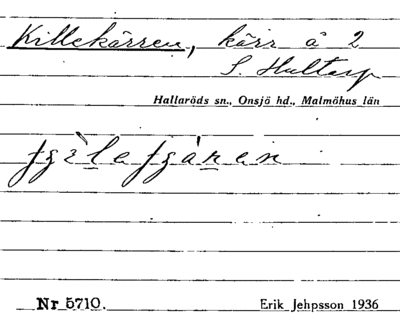 Killekärren, kärr å 2
S. Hultarp
Hallaröds sn., Onsjö hd., Malmöhus län
Nr 5710.
Erik Jehpsson 1936